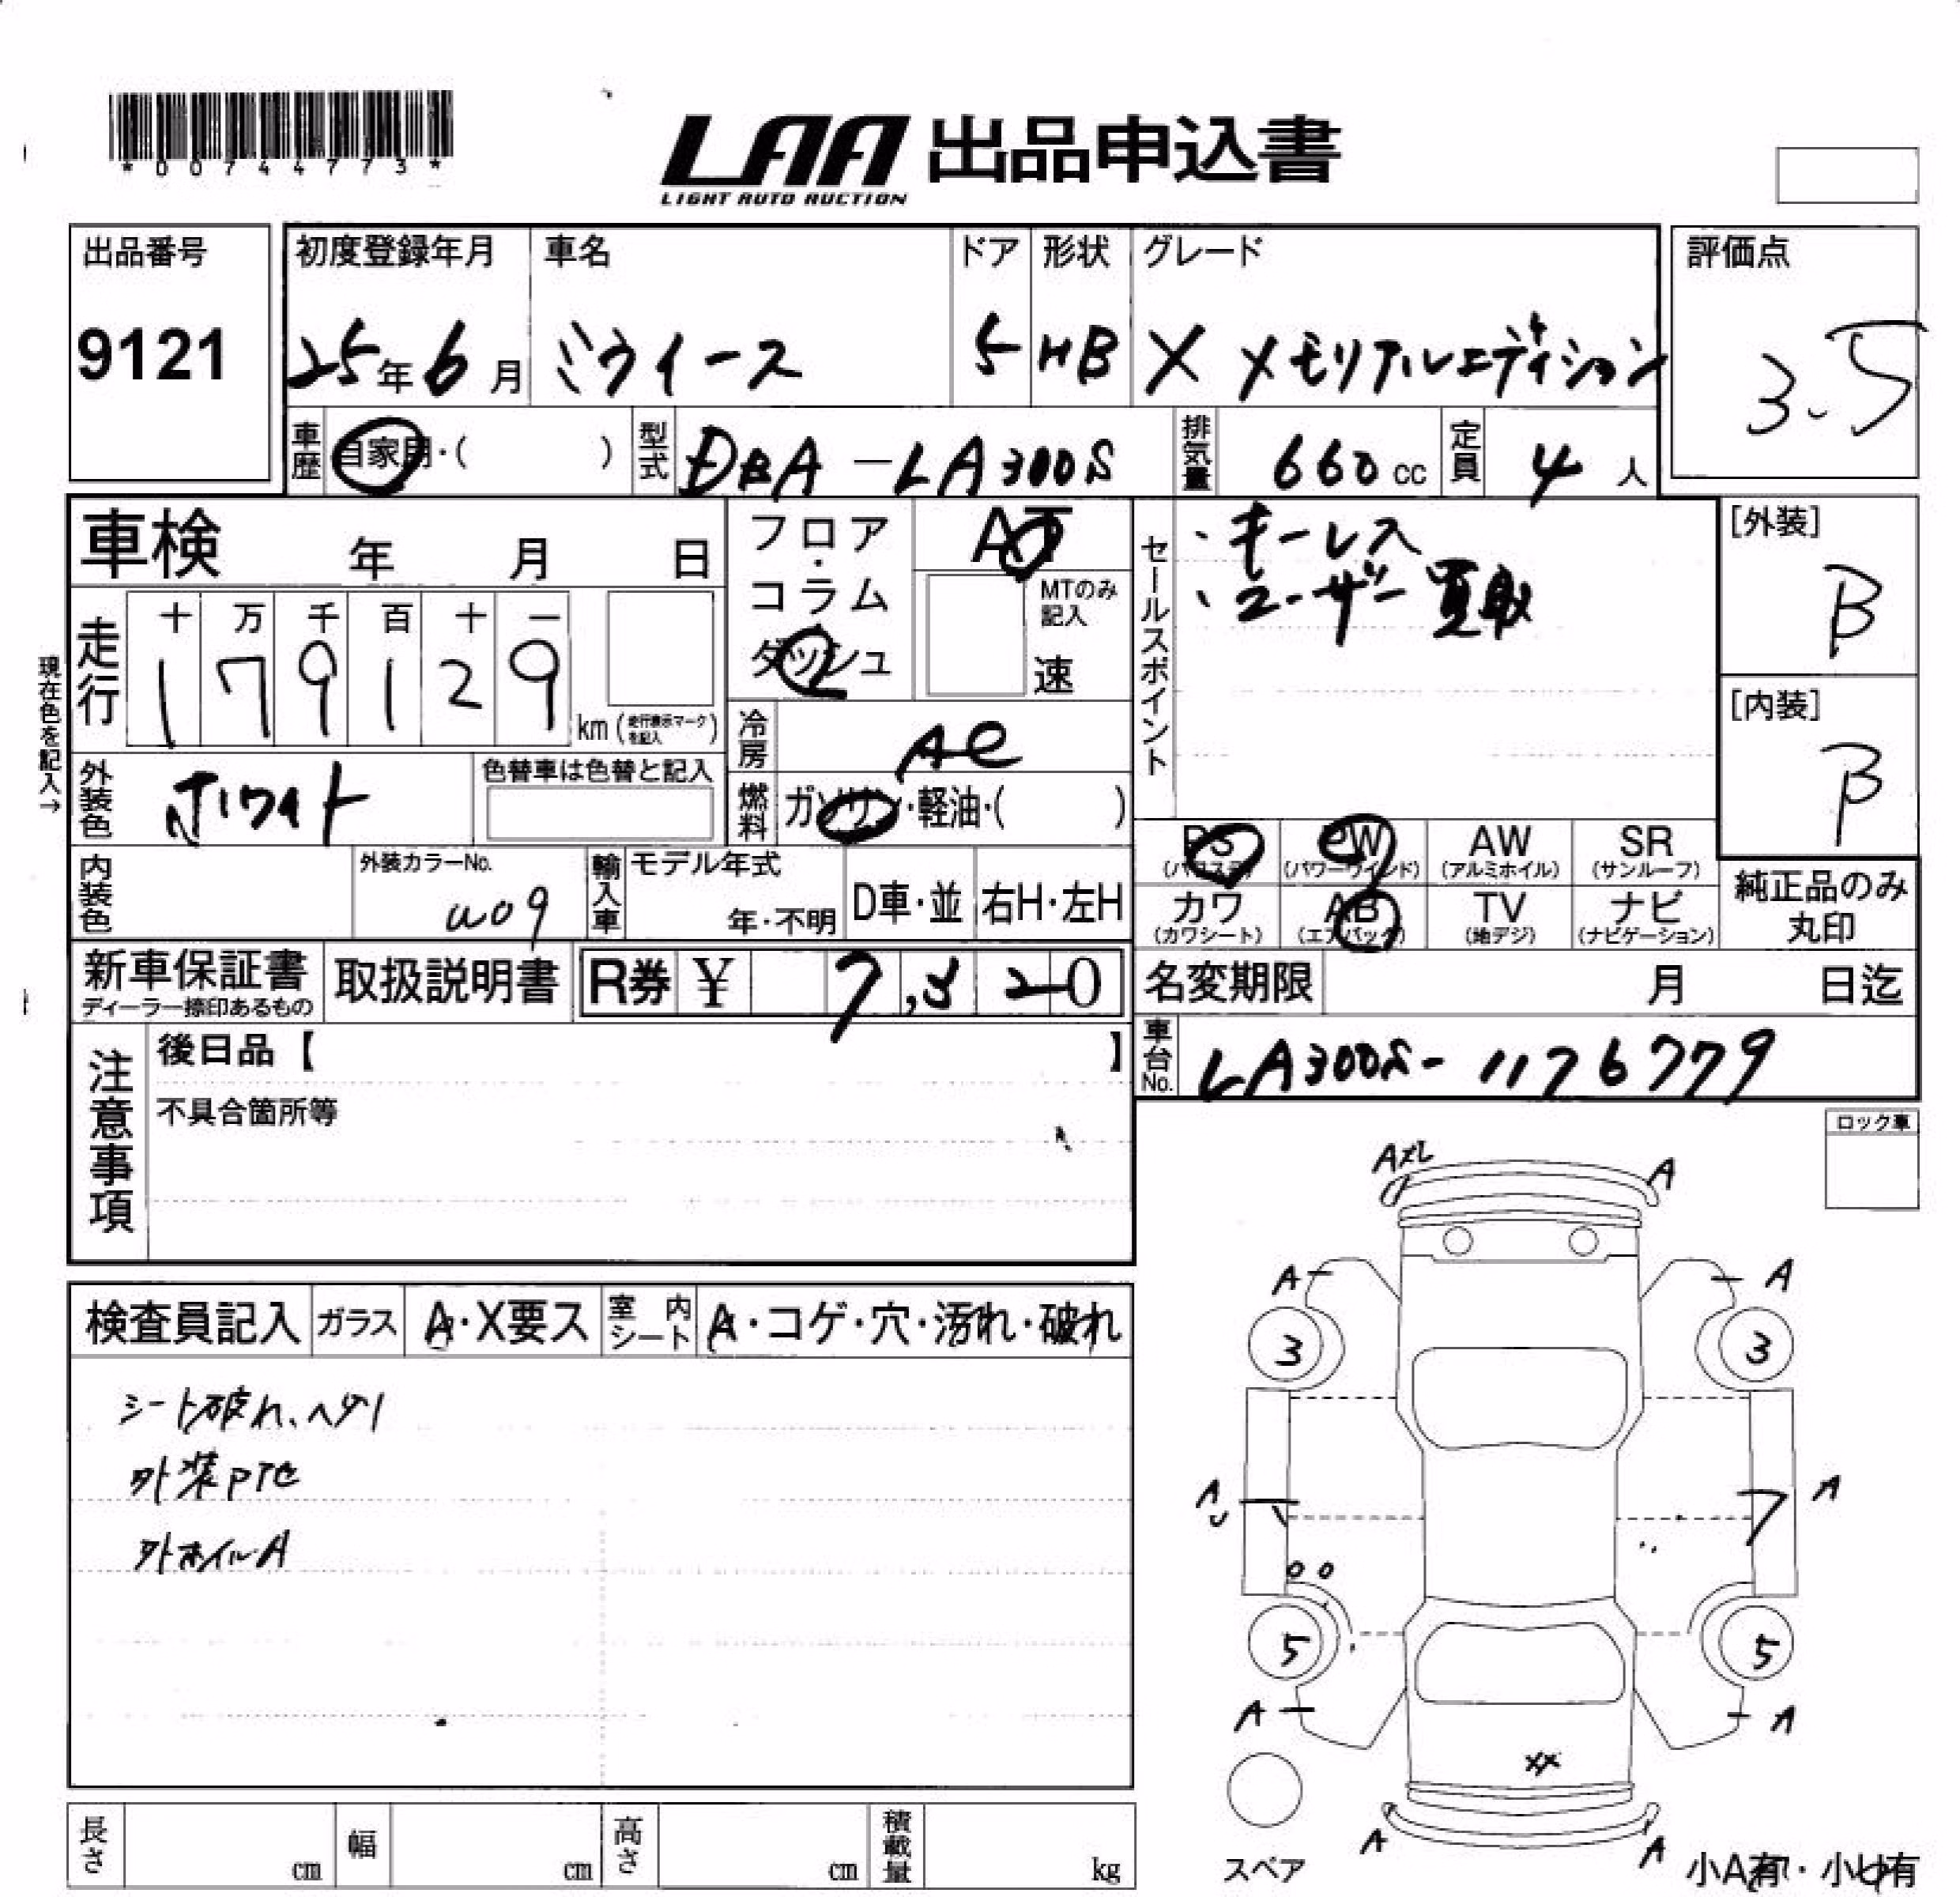 *00744773*
LAA 出品申込書
LIGHT AUTO AUCTION
出品番号
9121
初度登録年月
25年6月
車名
ミライース
ドア
5
形状
HB
グレード
X メモリアルエディション
評価点
3.5
車歴
自家用・( )
型式
DBA-LA300S
排気量
660cc
定員
4人
車検 年 月 日
フロア・コラム
ダッシュ
AT
MTのみ記入
速
セールスポイント
・キーレス
・ユーザー買取
[外装]
B
[内装]
B
現在色を記入→
走行
十 万 千 百 十 一
1 7 9 1 2 9
km(走行表示マークを記入)
冷房
AC
外装色
ホワイト
色替車は色替と記入
燃料
ガソリン・軽油・( )
PS
(パワステ)
PW
(パワーウインド)
AW
(アルミホイル)
SR
(サンルーフ)
カワ
(カワシート)
AB
(エアバック)
TV
(地デジ)
ナビ
(ナビゲーション)
純正品のみ
丸印
内装色
外装カラーNo.
W09
輸入車
モデル年式
年・不明
D車・並
右H・左H
新車保証書
ディーラー捺印あるもの
取扱説明書
R券 ¥ 7,820
名変期限 月 日迄
車台No.
LA300S-1176779
注意事項
後日品【 】
不具合箇所等
ロック車
検査員記入
ガラス
A・X要ス
室内シート
A・コゲ・穴・汚れ・破れ
シート破れ、ヘタリ
外装PTセ
外ホイルA
AXL
A
A
A
3
3
A
A
5
5
A
A
XX
A
A
スペア
小A有・小U有
長さ cm
幅 cm
高さ cm
積載量 kg